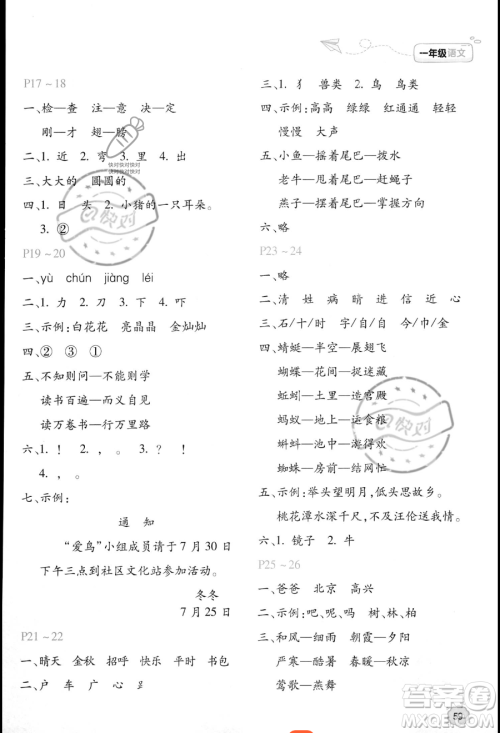 一年级语文
P17～18
一、检—查 注—意
刚—才 翅—膀
二、1. 近 2. 弯 3. 升 4. 出
三、大大的 圆圆的
四、1. 日 头 2. 小猪的一只耳朵。
3. ②
P19～20
一、yù chún jiàng léi
二、1. 力 2. 刀 3. 吓 4. 吓
三、示例：白花花 亮晶晶 金灿灿
四、② ③ ①
五、不知则问—不能则学
读书百遍—而义自见
读万卷书—行万里路
六、1. ！ 2. ， 。 3. ， ！
4. ， 。
七、示例：
通 知
“爱鸟”小组成员请于7月30日
下午三点到社区文化站参加活动。
冬冬
7月25日
P21～22
一、晴天 金秋 招呼 快乐 平时 书包
二、户 车 广 心
三、1. 犭 兽类 2. 鸟 鸟类
四、示例：高高 绿绿 红通通 轻轻
慢慢 大声
五、小鱼—摇着尾巴—拨水
老牛—甩着尾巴—赶蝇子
燕子—摆着尾巴—掌握方向
六、略
P23～24
一、略
二、清 姓 病 晴 进 近 心
三、石/十/时 字/自/自 令/今/气
四、蜻蜓—半空—展翅飞
蝴蝶—花间—捉迷藏
蚯蚓—土里—造宫殿
蚂蚁—地上—运食粮
蝌蚪—池中—游得欢
蜘蛛—房前—结网忙
五、示例：举头望明月，低头思故乡。
桃花潭水深千尺，不及汪伦送我情。
六、1. 镜子 2. 牛
P25～26
一、爸爸 北京 高兴
二、示例：吧、呢、吗、树、林、柏
三、和风—细雨 朝霞—夕阳
严寒—酷暑 春暖—秋凉
莺歌—燕舞
快对
快对
答案圈